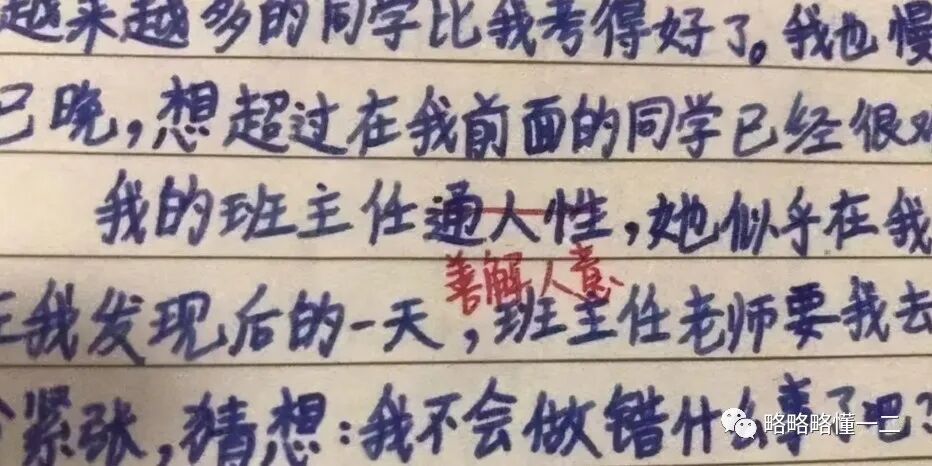 越来越多的同学比我考得好了。我也慢
已晚，想超过在我前面的同学已经很
我的班主任通人性，她似乎在我
善解人意
我发现后的一天，班主任老师要我去
紧张，猜想：我不会做错什么事了吧？
略略略懂一二